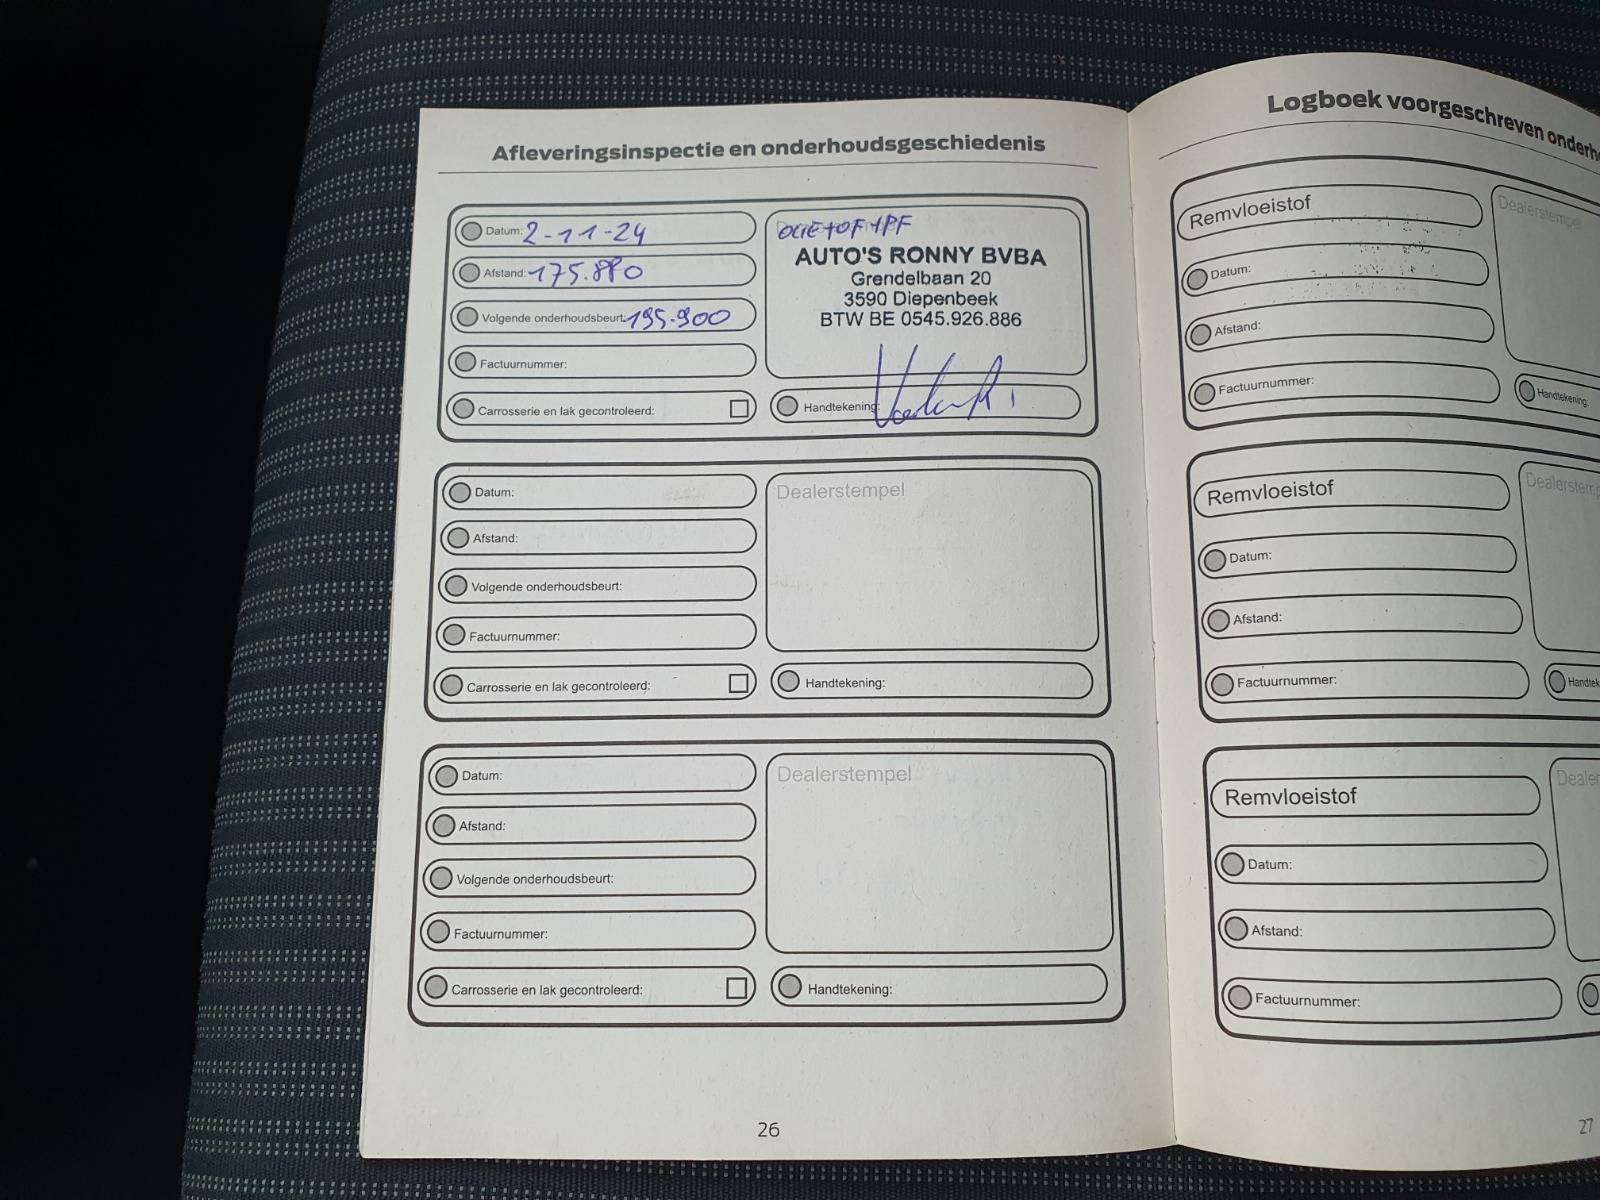 Afleveringsinspectie en onderhoudsgeschiedenis
Datum: 2-11-24
Afstand: 175.890
Volgende onderhoudsbeurt: 195.900
Factuurnummer:
Carrosserie en lak gecontroleerd:
AUTO'S RONNY BVBA
Grendelbaan 20
3590 Diepenbeek
BTW BE 0545.926.886
Handtekening:
Datum:
Afstand:
Volgende onderhoudsbeurt:
Factuurnummer:
Carrosserie en lak gecontroleerd:
Dealerstempel
Handtekening:
Datum:
Afstand:
Volgende onderhoudsbeurt:
Factuurnummer:
Carrosserie en lak gecontroleerd:
Dealerstempel
Handtekening:
26
Logboek voorgeschreven
Remvloeistof
Datum:
Afstand:
Factuurnummer:
Dealerstempel
Handtekening:
Remvloeistof
Datum:
Afstand:
Factuurnummer:
Remvloeistof
Datum:
Afstand:
Factuurnummer:
27